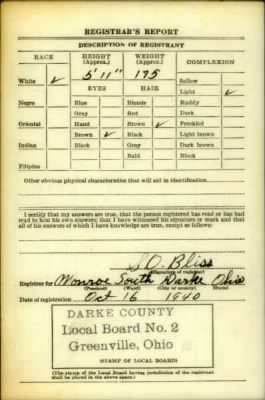 REGISTRAR'S REPORT
DESCRIPTION OF REGISTRANT
RACE HEIGHT (Approx.) WEIGHT (Approx.) COMPLEXION
5'11" 175 Sallow
White ✓ EYES HAIR Light ✓
Negro Blue Blonde Ruddy
Gray Red Dark
Oriental Hazel Brown ✓ Freckled
Brown ✓ Black Light brown
Indian Black Gray Dark brown
Bald Black
Filipino
Other obvious physical characteristics that will aid in identification
I certify that my answers are true; that the person registered has read or has had
read to him his own answers; that I have witnessed his signature or mark and that
all of his answers of which I have knowledge are true, except as follows:
O. Bliss
(Signature of registrar)
Registrar for Monroe South Darke Ohio
(Precinct) (Ward) (City or county) (State)
Date of registration Oct 16 1940
DARKE COUNTY
Local Board No. 2
Greenville, Ohio
(STAMP OF LOCAL BOARD)
(The stamp of the Local Board having jurisdiction of the registrant
shall be placed in the above space.)